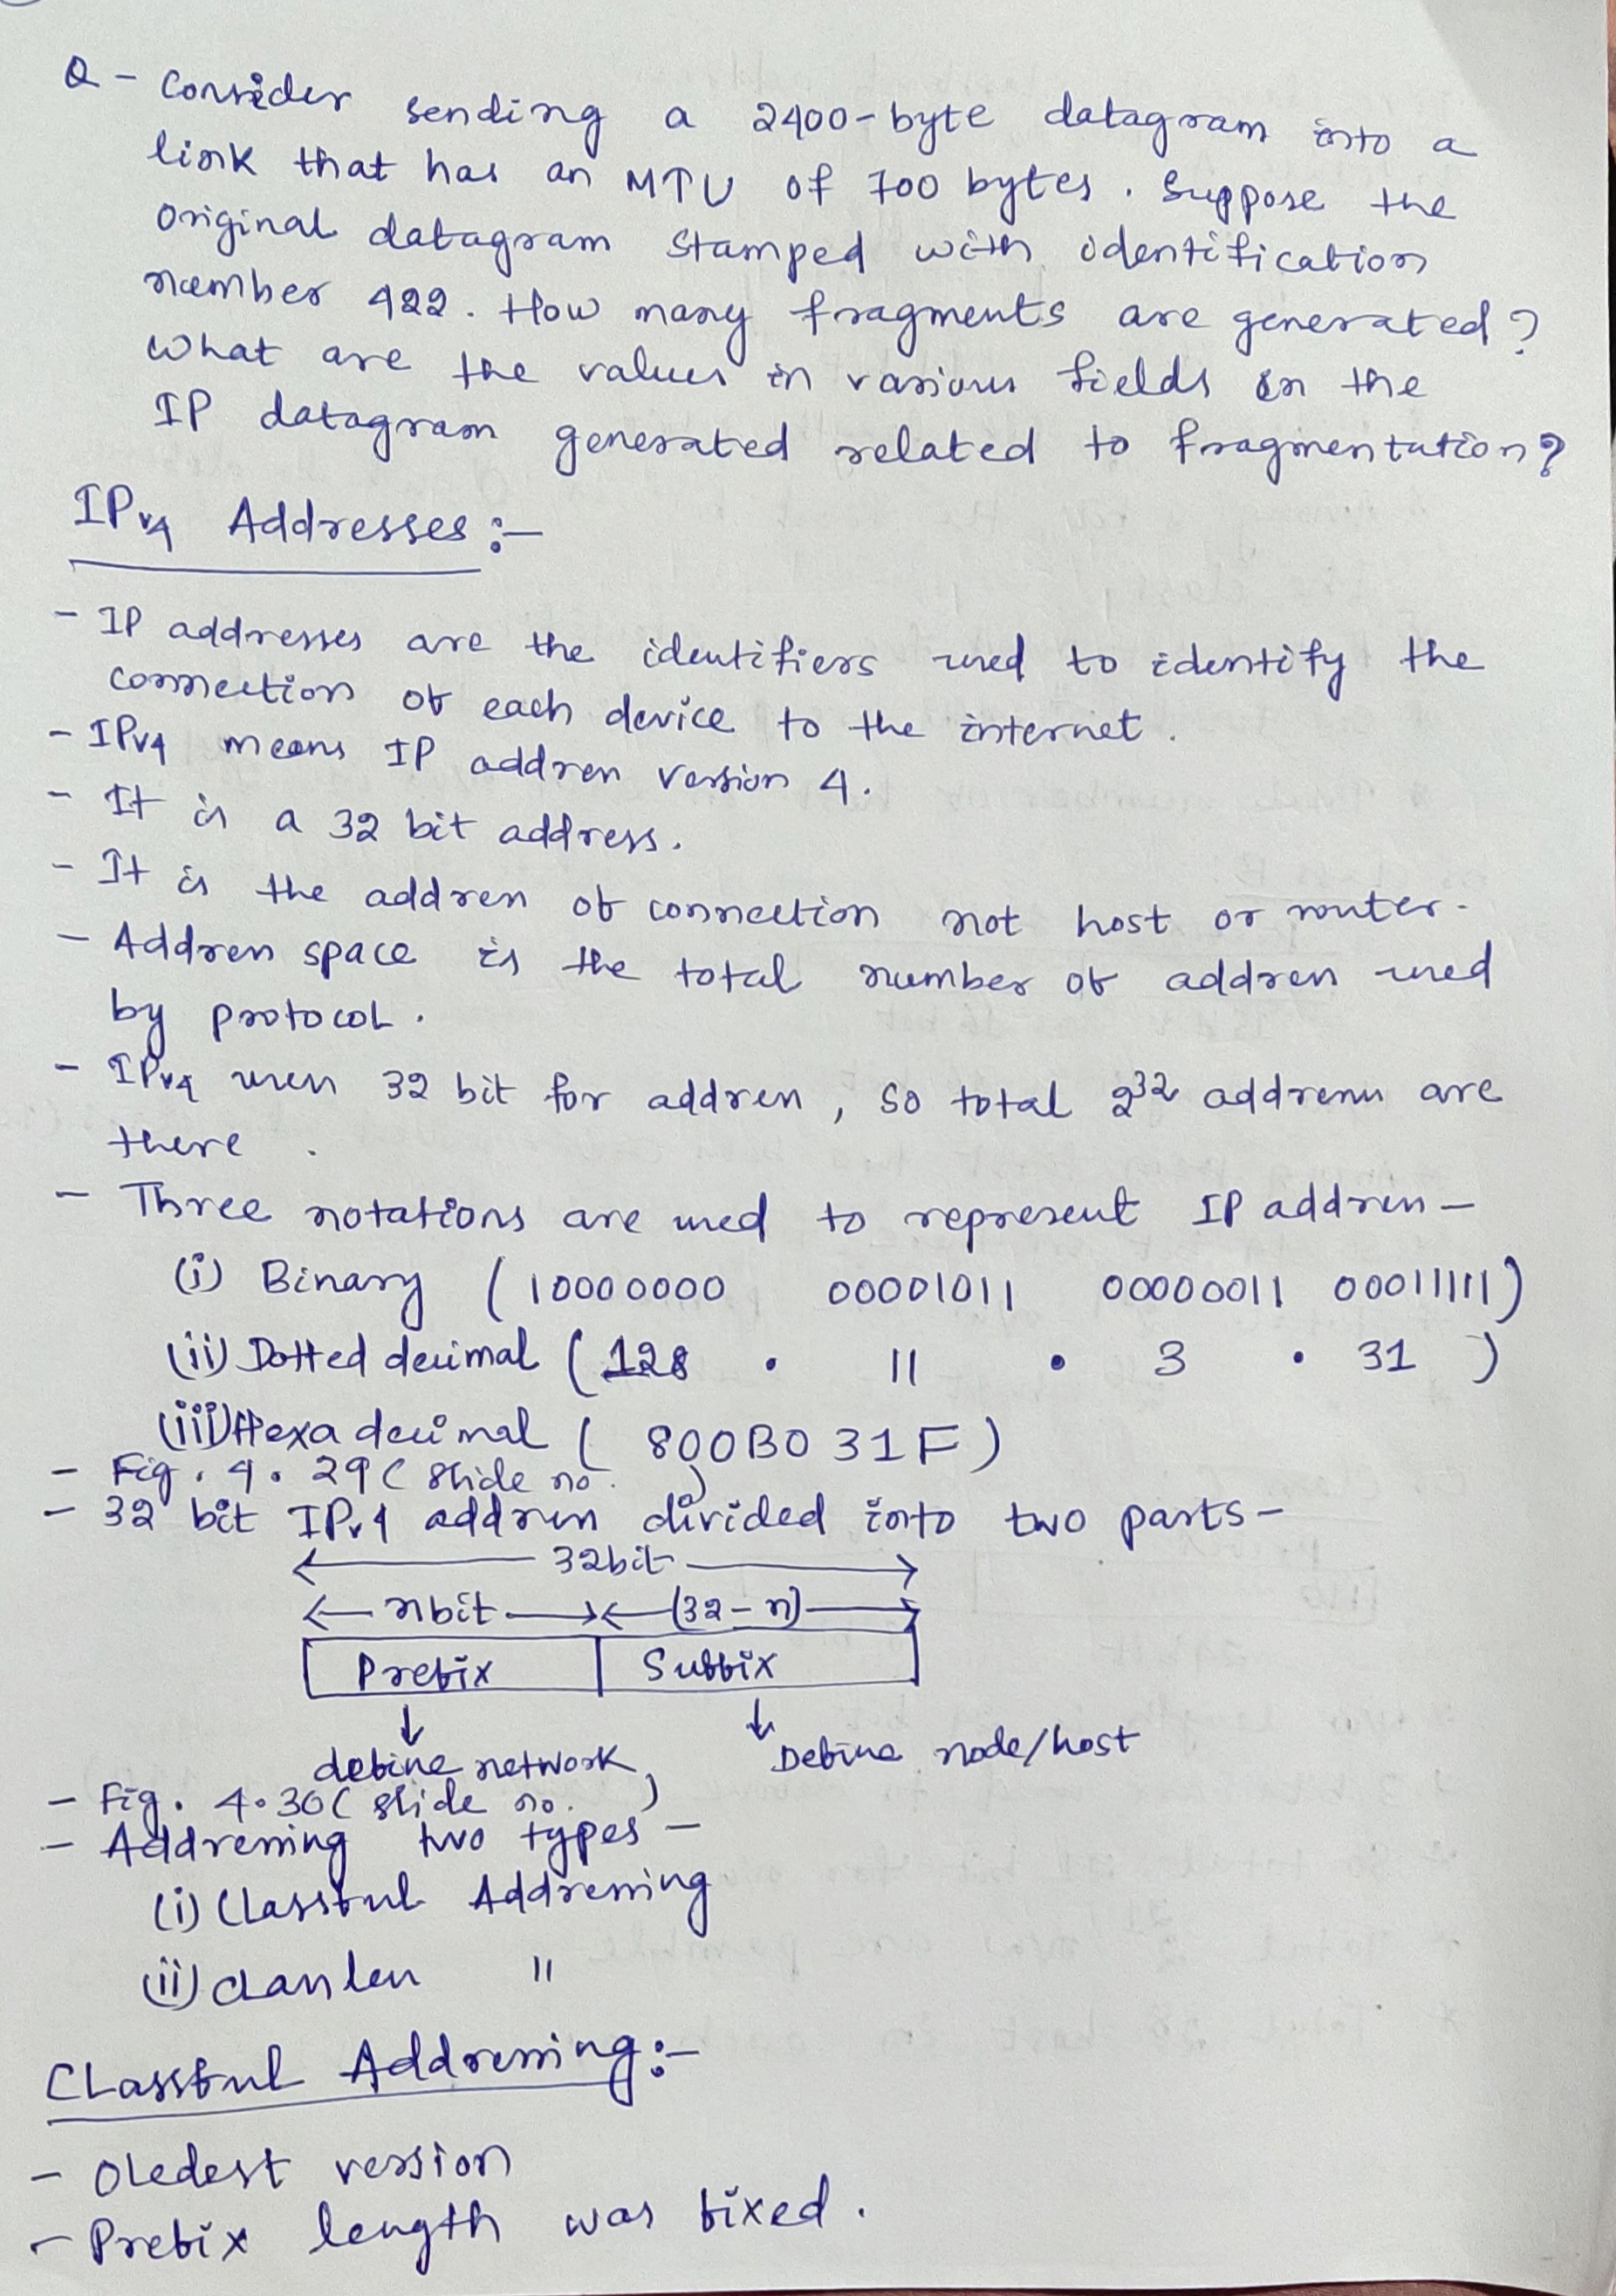 Q - Consider sending a 2400-byte datagram into a
link that has an MTU of 700 bytes. Suppose the
original datagram stamped with identification
number 422. How many fragments are generated?
What are the values in various fields in the
IP datagram generated related to fragmentation?
IPv4 Addresses :-
- IP addresses are the identifiers used to identify the
connection of each device to the internet.
- IPv4 means IP address version 4.
- It is a 32 bit address.
- It is the address of connection not host or router.
- Address space is the total number of address used
by protocol.
- IPv4 uses 32 bit for address, so total 2^32 address are
there.
- Three notations are used to represent IP address -
(i) Binary (10000000 00001011 00000011 00011111)
(ii) Dotted decimal (128 . 11 . 3 . 31)
(iii) Hexa decimal (800B031F)
- Fig. 4.29 (slide no. )
- 32 bit IPv4 address divided into two parts -
32bit
n bit (32-n)
Prefix Suffix
define network Define node/host
- Fig. 4.30 (slide no. )
- Addressing two types -
(i) Classful Addressing
(ii) Classless "
Classful Addressing :-
- Oledest version
- Prefix length was fixed.